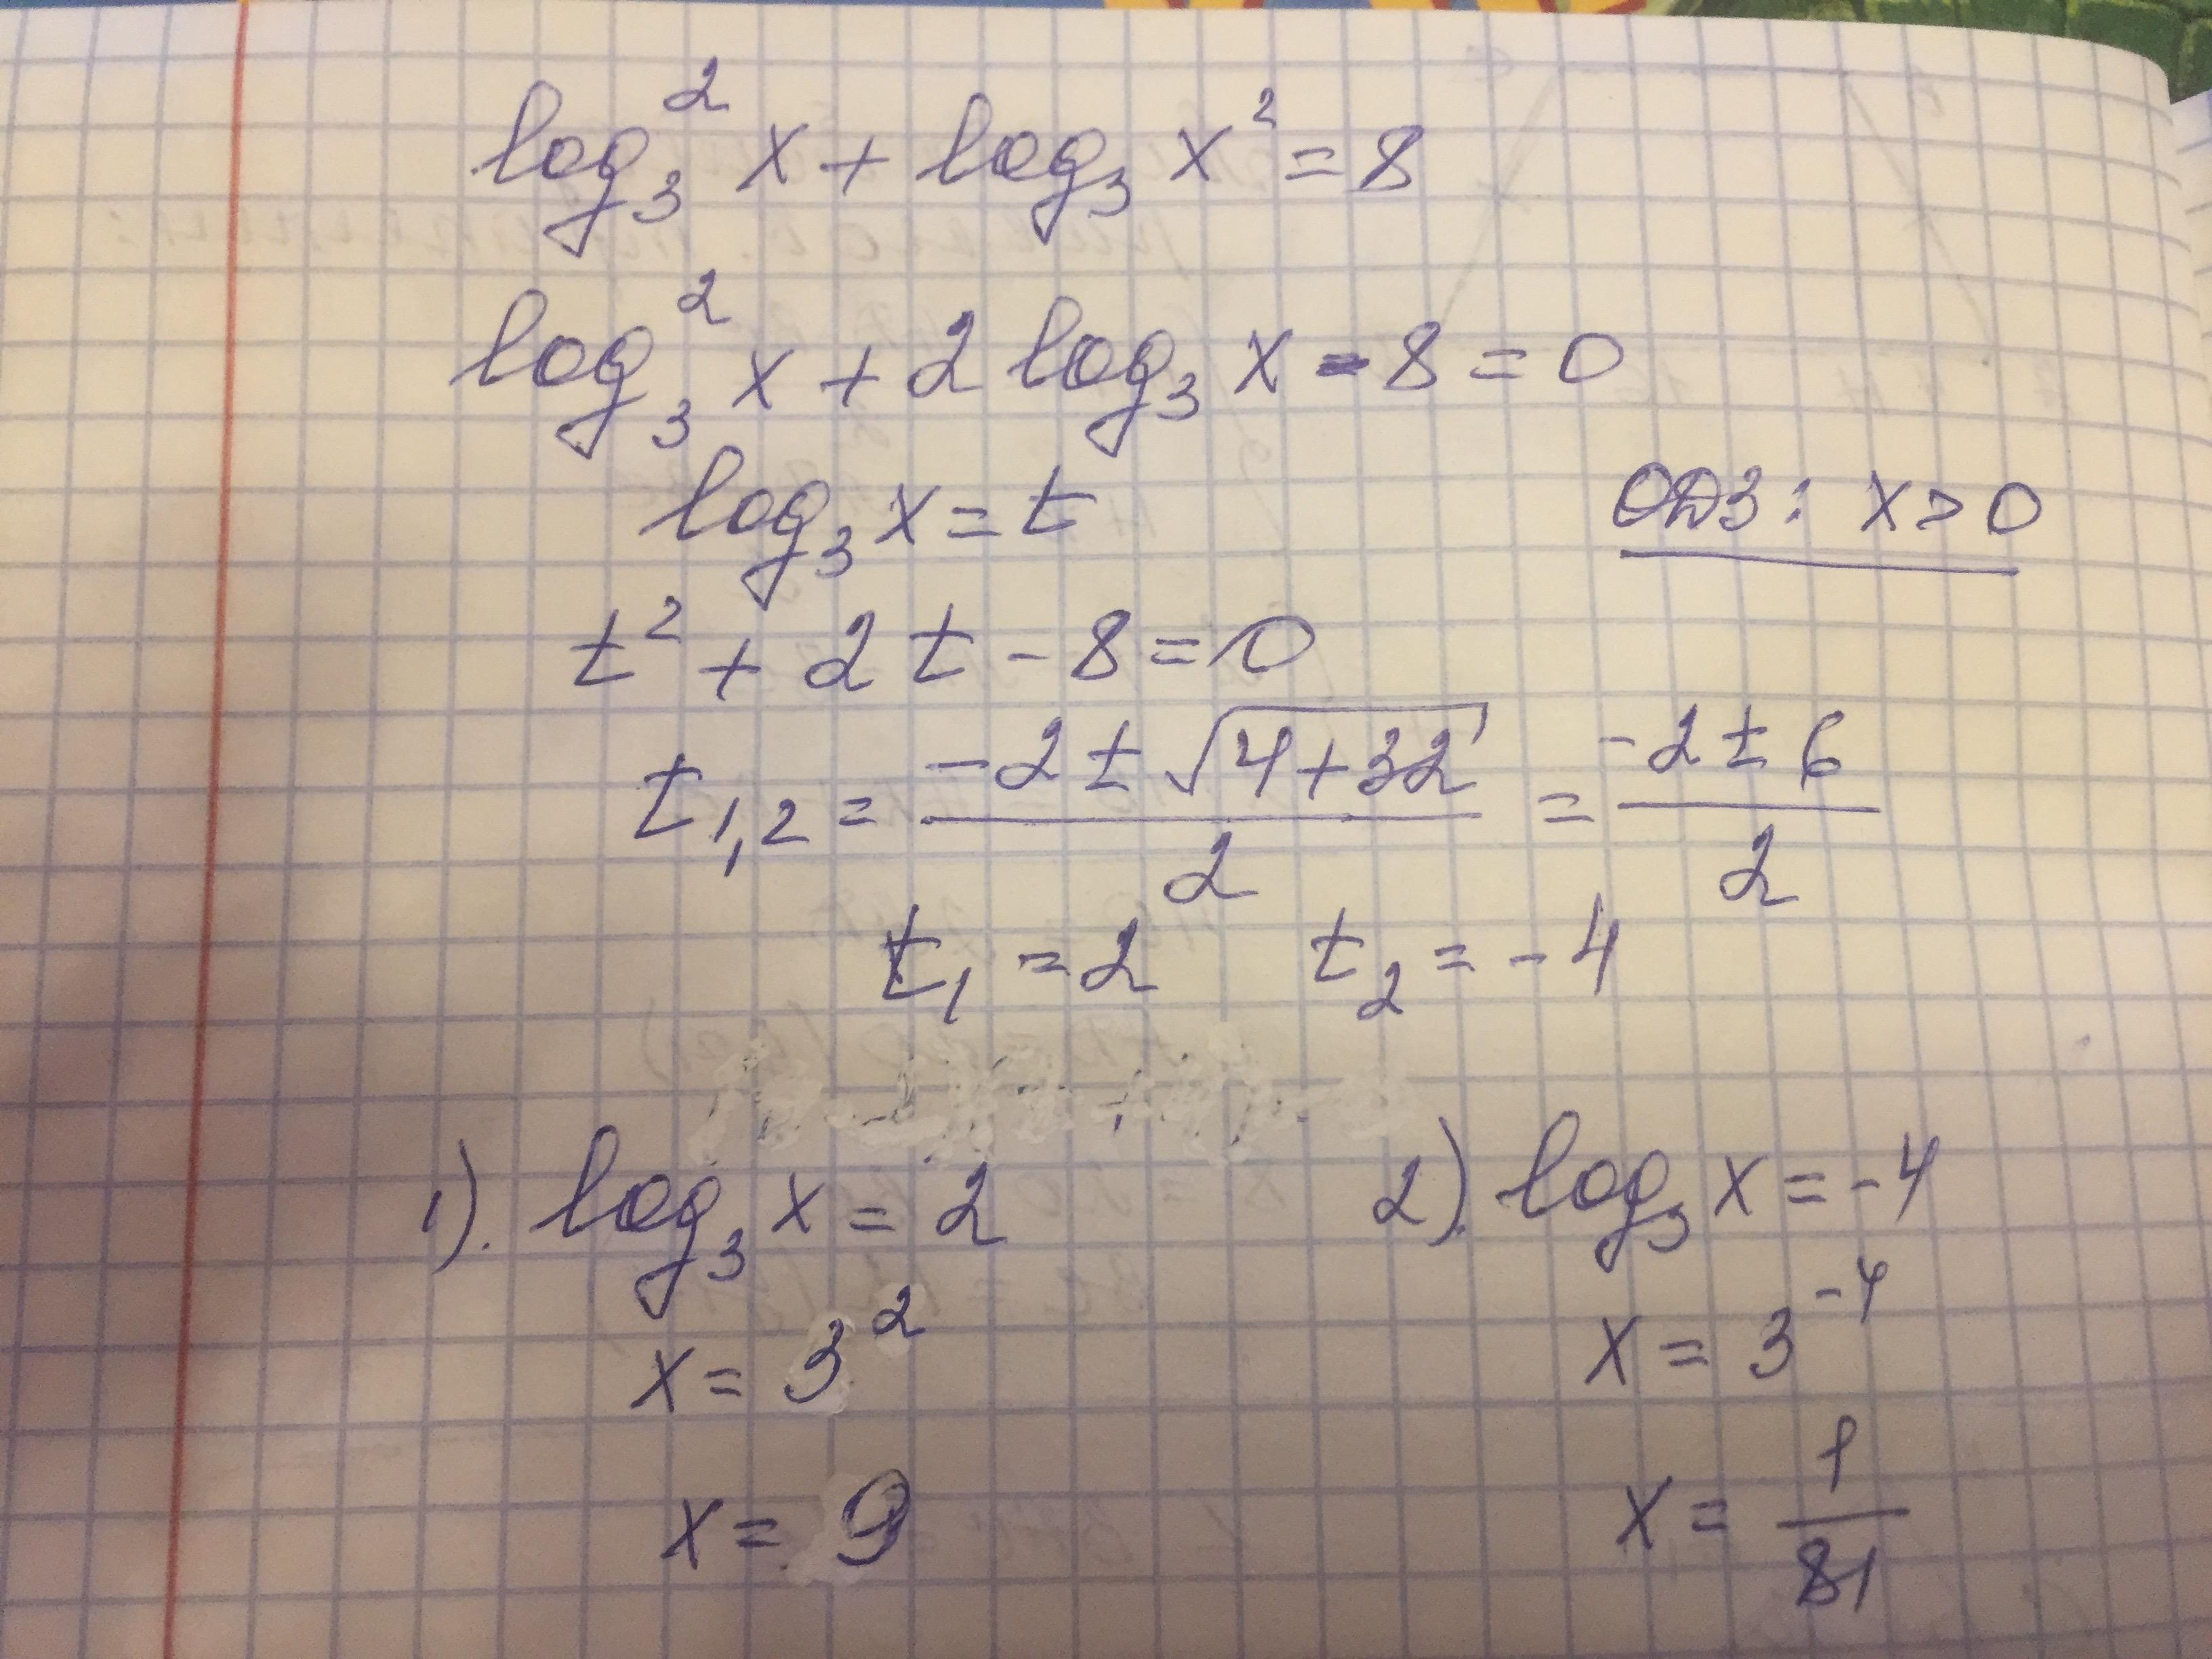 log₃² x + log₃ x² = 8
log₃² x + 2 log₃ x - 8 = 0
log₃ x = t
ОДЗ: x > 0
t² + 2t - 8 = 0
t₁,₂ = (-2 ± √(4+32))/2 = (-2 ± 6)/2
t₁ = 2 t₂ = -4
1). log₃ x = 2
x = 3²
x = 9
2). log₃ x = -4
x = 3⁻⁴
x = 1/81